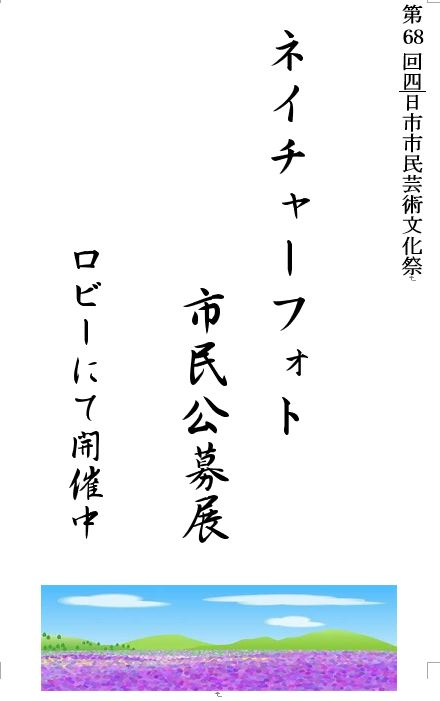 第68回四日市市民芸術文化祭
ネイチャーフォト
市民公募展
ロビーにて開催中